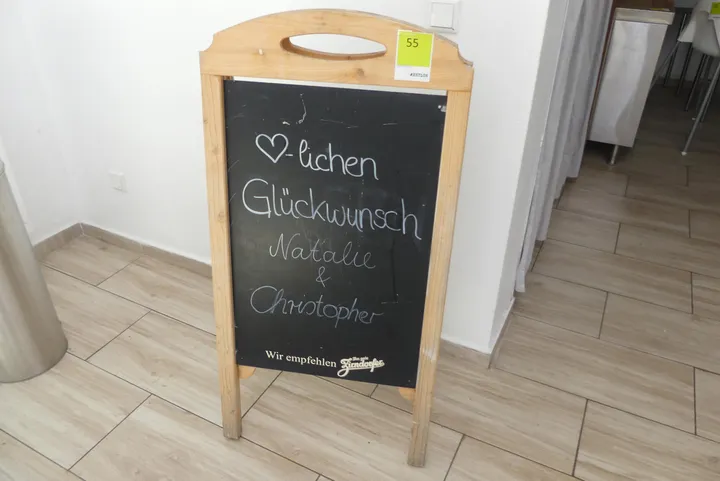 55
♡-lichen
Glückwunsch
Natalie
&
Christopher
Wir empfehlen Zundorfer